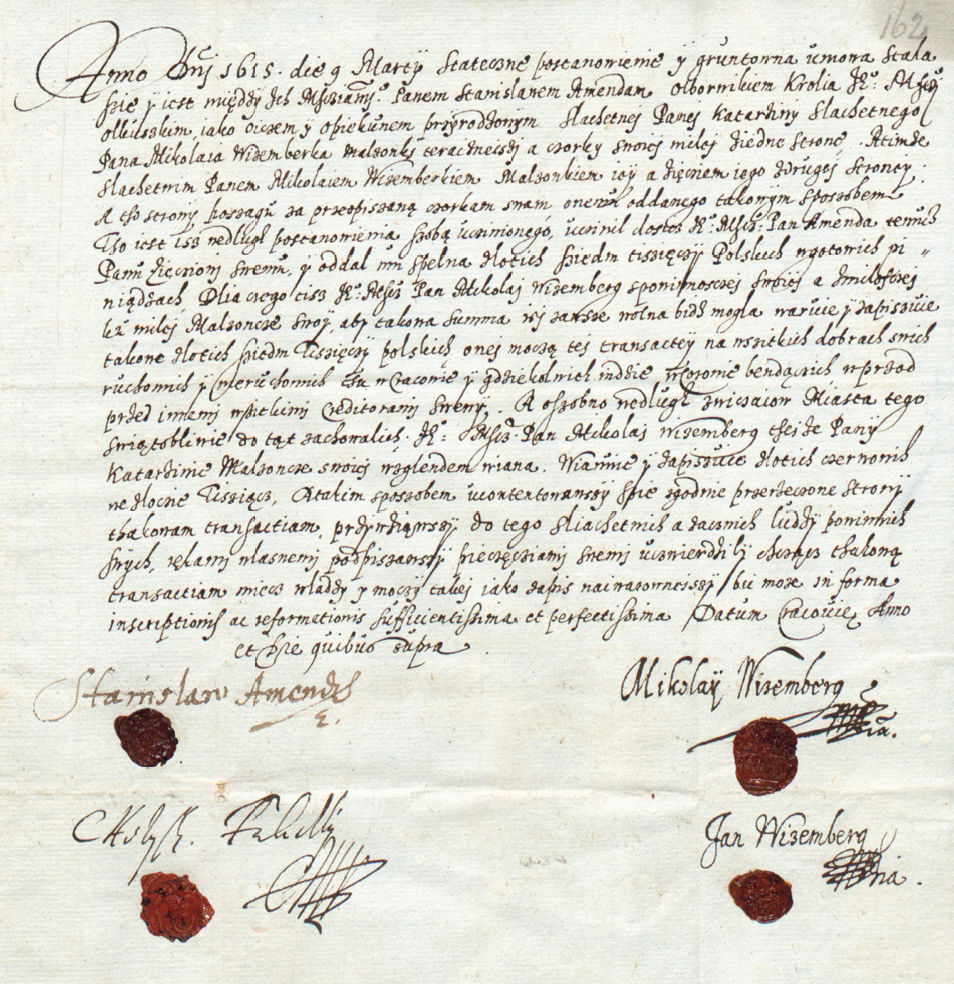 162
Anno Dnj 1615. die 9 Martij Stateczne postanowienie y gruntowna umowa Stała
szie y iest między Ich Msciami. Panem Stanislawem Amendam Olbornikiem Krolia Je: Msczi
olkuskim, iako oiczem y opiekunem przyrodzonym Slachetnej Paniej Katarziny Slachetnego
Pana Mikolaia Wizemberka Malzonki teraznieiszej a czorky swoiej milej ziedne strone. A timze
Slachetnim Panem Mikolaiem Wizemberkiem Malzonkiem iey a zięciem iego zdrugej stroney.
A tho strony posagu za przeopiszaną czorkam swam onemu oddanego takowym sposobem
Tho iest isz wedlugk postanowienia szobą uczinionego, uczinil dosicz Je: Mscz: Pan Amenda temusz
Panu zięciowj swemu, y oddal mu spelna zlotich siedm tiszięczy Polskich wgotowich pi
niądzach, Dlia czego tisz Je: Mscz Pan Mikolaj Wizemberg spowinnosczej swoiej a zmilosczej
ku milej Malzoncze swoy, aby takowa summa iej zawsze wolna bidz mogla waruie y zapiszuie
takowe zlotich siedm Tiszięczy polskich onej moczą tej transactiey na wszitkich dobrach swich
ruchomich y nieruchomich tu w Cracowie y gdziekolwiek indzie bendących wprzod
przed inszemi wszitkimi Creditorami swemy. A oszobno wedlugk zwiczaiow Miasta tego
swiątobliwie do tąt zachowalich. Je: Mscz Pan Mikolaj Wizemberg theize Paniy
Katarzinie Malzoncze swoiej wzglendem wiana. Wianuie y zapiszuie zlotich czerwonich
we zlocie Tisziącz, A takim sposzobem ucontentowawszy szie zgodnie przerzeczone strony
thakowam transactiam, przywziąwszy do tego sliachetnich a zacznich ludzy powinnich
swych, rękami wlasnemi podpiszawszy pieczęciami swemi utwierdzily chcząc thakową
transactiam miecz wladzy y moczy takiej iako zapis naiwarownieiszy bić może in forma
inscriptionis ac reformationis sufficientissima et perfectissima Datum Cracoviae Anno
et Die quibus supra
Stanislaw Amenda
Mikolaÿ Wizemberg
Jan Wizemberg